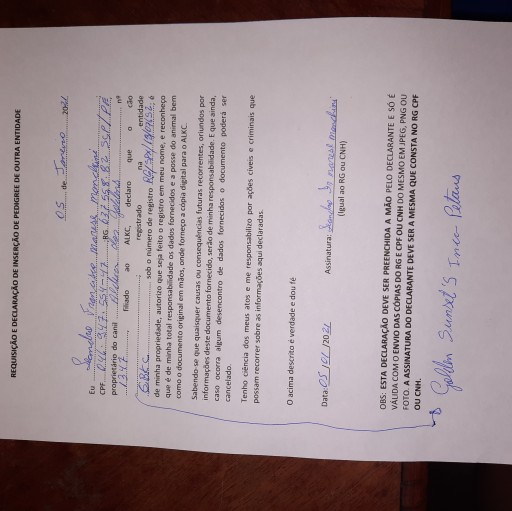 REQUISIÇÃO E DECLARAÇÃO DE INSERÇÃO DE PEDIGREE DE OUTRA ENTIDADE
05 de Janeiro 2021
Eu Sandro Francisco
CPF 016.947.554-47 RG
proprietário do canil nº
1347, filiado ao ALKC, declaro que o cão
registrado na entidade
CBKC sob o número de registro
de minha propriedade, autorizo que seja feito o registro em meu nome, e reconheço
que é de minha total responsabilidade os dados fornecidos e a posse do animal bem
como o documento original em mãos, onde forneço a cópia digital para o ALKC.
Sabendo-se que quaisquer causas ou consequências futuras recorrentes, oriundos por
informações deste documento fornecido, serão de minha responsabilidade. E que ainda,
caso ocorra algum desencontro de dados fornecidos o documento poderá ser
cancelado.
Tenho ciência dos meus atos e me responsabilizo por ações cíveis e criminais que
possam recorrer sobre as informações aqui declaradas.
O acima descrito é verdade e dou fé
Data: 05/01/2021 Assinatura: Sandro
(Igual ao RG ou CNH)
OBS: ESTA DECLARAÇÃO DEVE SER PREENCHIDA A MÃO PELO DECLARANTE E SÓ É
VÁLIDA COM O ENVIO DAS CÓPIAS DO RG E CPF OU CNH DO MESMO EM JPEG, PNG OU
FOTO. A ASSINATURA DO DECLARANTE DEVE SER A MESMA QUE CONSTA NO RG CPF
OU CNH.
Golden Sunset'S